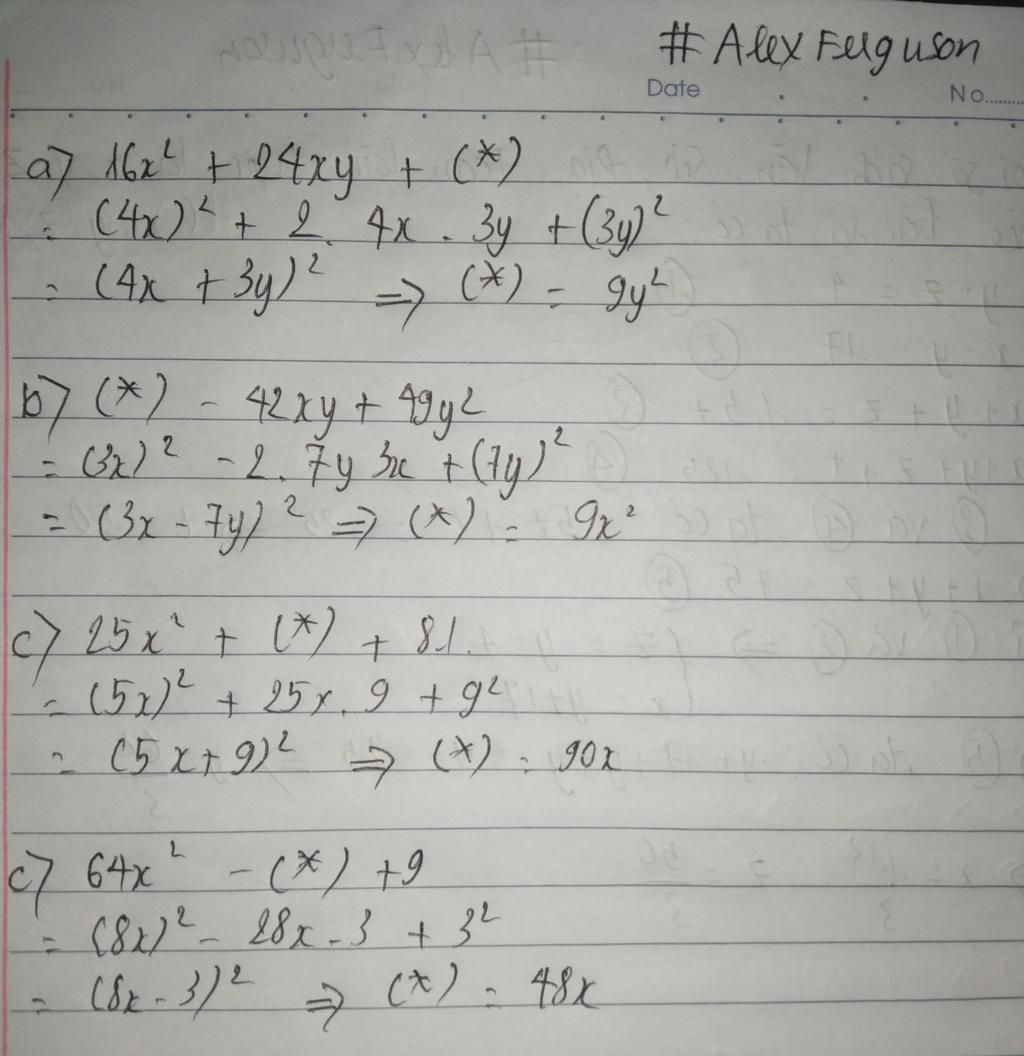 # Alex Ferguson
Date No......
a) 16x² + 24xy + (*)
= (4x)² + 2. 4x . 3y + (3y)²
= (4x + 3y)² => (*) = 9y²
b) (*) - 42xy + 49y²
= (3x)² - 2. 7y 3x + (7y)²
= (3x - 7y)² => (*) = 9x²
c) 25x² + (*) + 81.
= (5x)² + 25x. 9 + 9²
= (5x + 9)² => (*) = 90x
c) 64x² - (*) + 9
= (8x)² - 28x . 3 + 3²
= (8x - 3)² => (*) = 48x